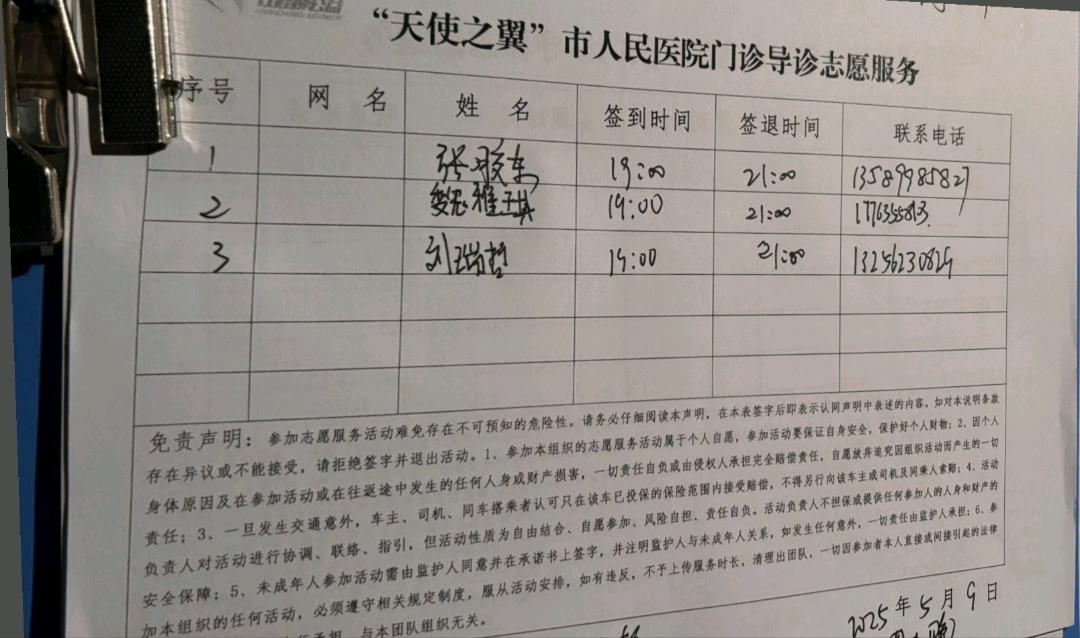 “天使之翼”市人民医院门诊导诊志愿服务
序号 网 名 姓 名 签到时间 签退时间 联系电话
1 张 东 19:00 21:00 13589985827
2 雅琪 19:00 21:00
3 刘瑞哲 19:00 21:00 13256230829
免责声明：参加志愿服务活动难免存在不可预知的危险性。请务必仔细阅读本声明，在本表签字后即表示认同声明中表述的内容。如对本说明条款
存在异议或不能接受，请拒绝签字并退出活动。1、参加本组织的志愿服务活动属于个人自愿，参加活动要保证自身安全，保护好个人财物；2、因个人
身体原因及在参加活动或在往返途中发生的任何人身或财产损害，一切责任自负或由侵权人承担完全赔偿责任，自愿放弃追究因组织活动而产生的一切
责任；3、一旦发生交通意外，车主、司机、同车搭乘者认可只在该车已投保的保险范围内接受赔偿，不得另行向该车主或司机及同乘人索赔；4、活动
负责人对活动进行协调、联络、指引，但活动性质为自由结合、自愿参加、风险自担、责任自负。活动负责人不担保或提供任何参加人的人身和财产的
安全保障；5、未成年人参加活动需由监护人同意并在承诺书上签字，并注明监护人与未成年人关系，如发生任何意外，一切责任由监护人承担；6、参
加本组织的任何活动，必须遵守相关规定制度，服从活动安排，如有违反，不予上传服务时长，清理出团队，一切因参加者本人直接或间接引起的法律
与本团队组织无关。
2025年5月9日